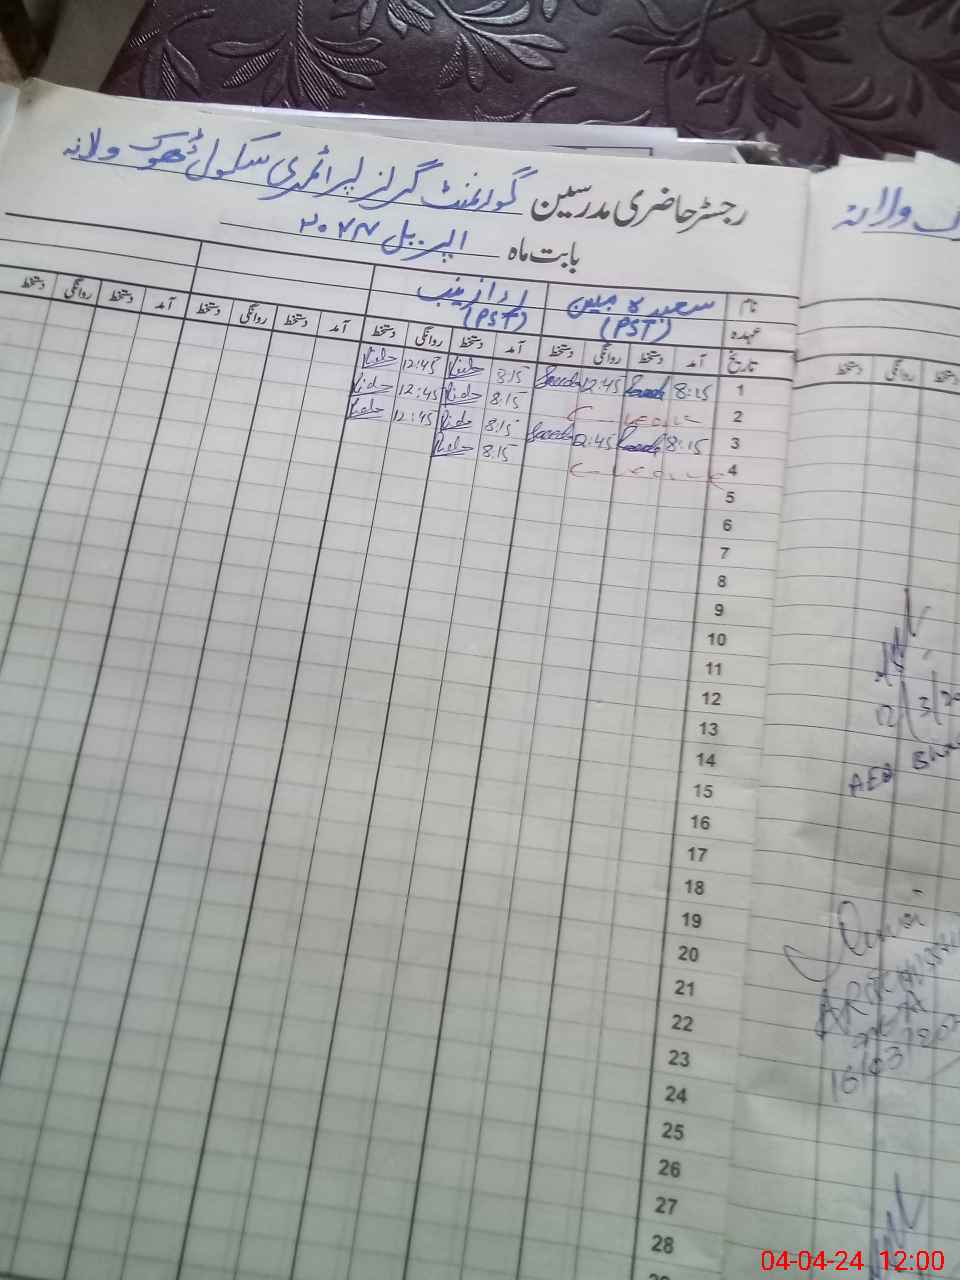 رجسٹر حاضری مدرسین گورنمنٹ گرلز پرائمری سکول ڈھوک ولانہ
بابت ماہ اپریل ۲۰۲۴
نام سعیدہ مبین ردا زینب
عہدہ (PST) (PST)
تاریخ آمد دستخط روانگی دستخط آمد دستخط روانگی دستخط آمد دستخط روانگی دستخط آمد دستخط روانگی دستخط
1 8:15 Saeeda 12:45 Saeeda 8:15 Rida 12:45 Rida
2 Leave 8:15 Rida 12:45 Rida
3 8:15 Saeeda 12:45 Saeeda 8:15 Rida 12:45 Rida
4 Leave 8:15 Rida
5
6
7
8
9
10
11
12
13
14
15
16
17
18
19
20
21
22
23
24
25
26
27
28
ولانہ
دستخط روانگی دستخط
12/3/20
AEO
16/03/20
04-04-24 12:00